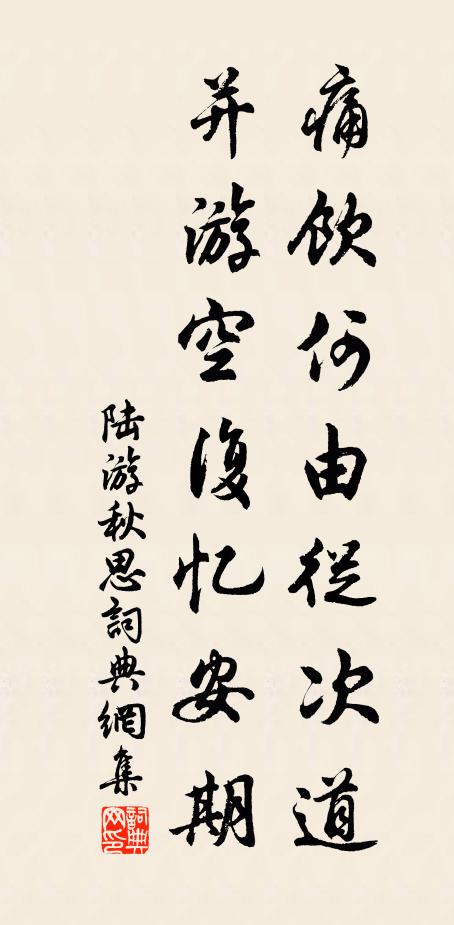 痛飲何由從次道
并游空復忆安期
陆游秋思詞典網集
詞典網印